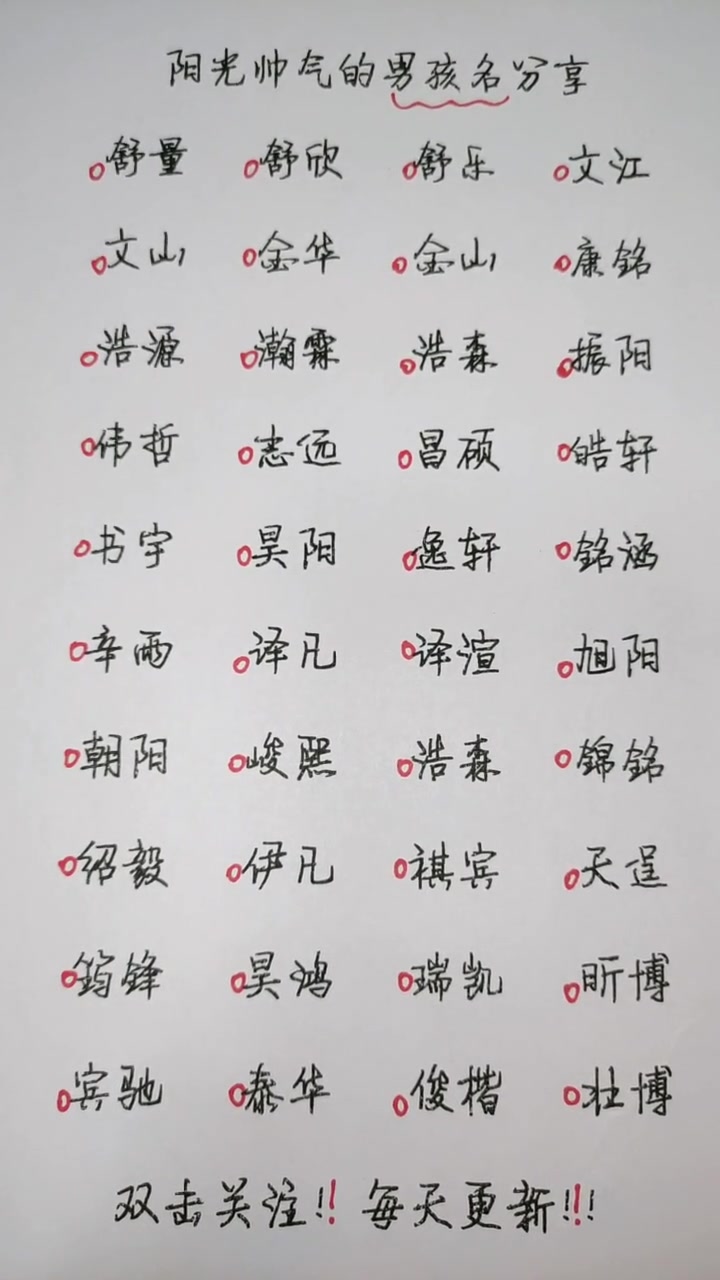 阳光帅气的男孩名分享
舒量 舒欣 舒乐 文江
文山 金华 金山 康铭
浩源 瀚霖 浩森 振阳
伟哲 志远 昌硕 皓轩
书宇 昊阳 逸轩 铭涵
辛雨 译凡 译渲 旭阳
朝阳 峻熙 浩森 锦铭
绍毅 伊凡 祺宾 天逞
筠锋 昊鸿 瑞凯 昕博
宾驰 泰华 俊楷 壮博
双击关注!! 每天更新!!!